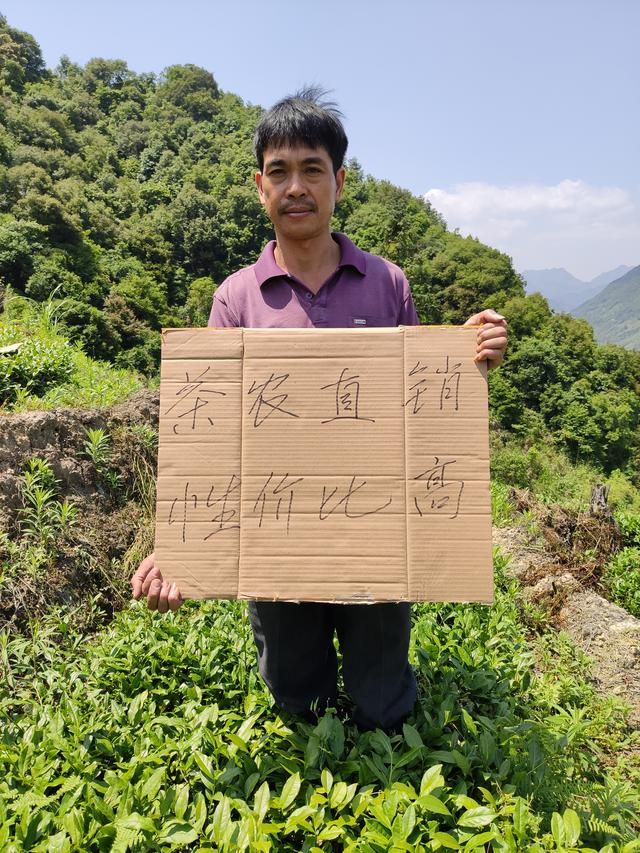 茶农直销
性价比高